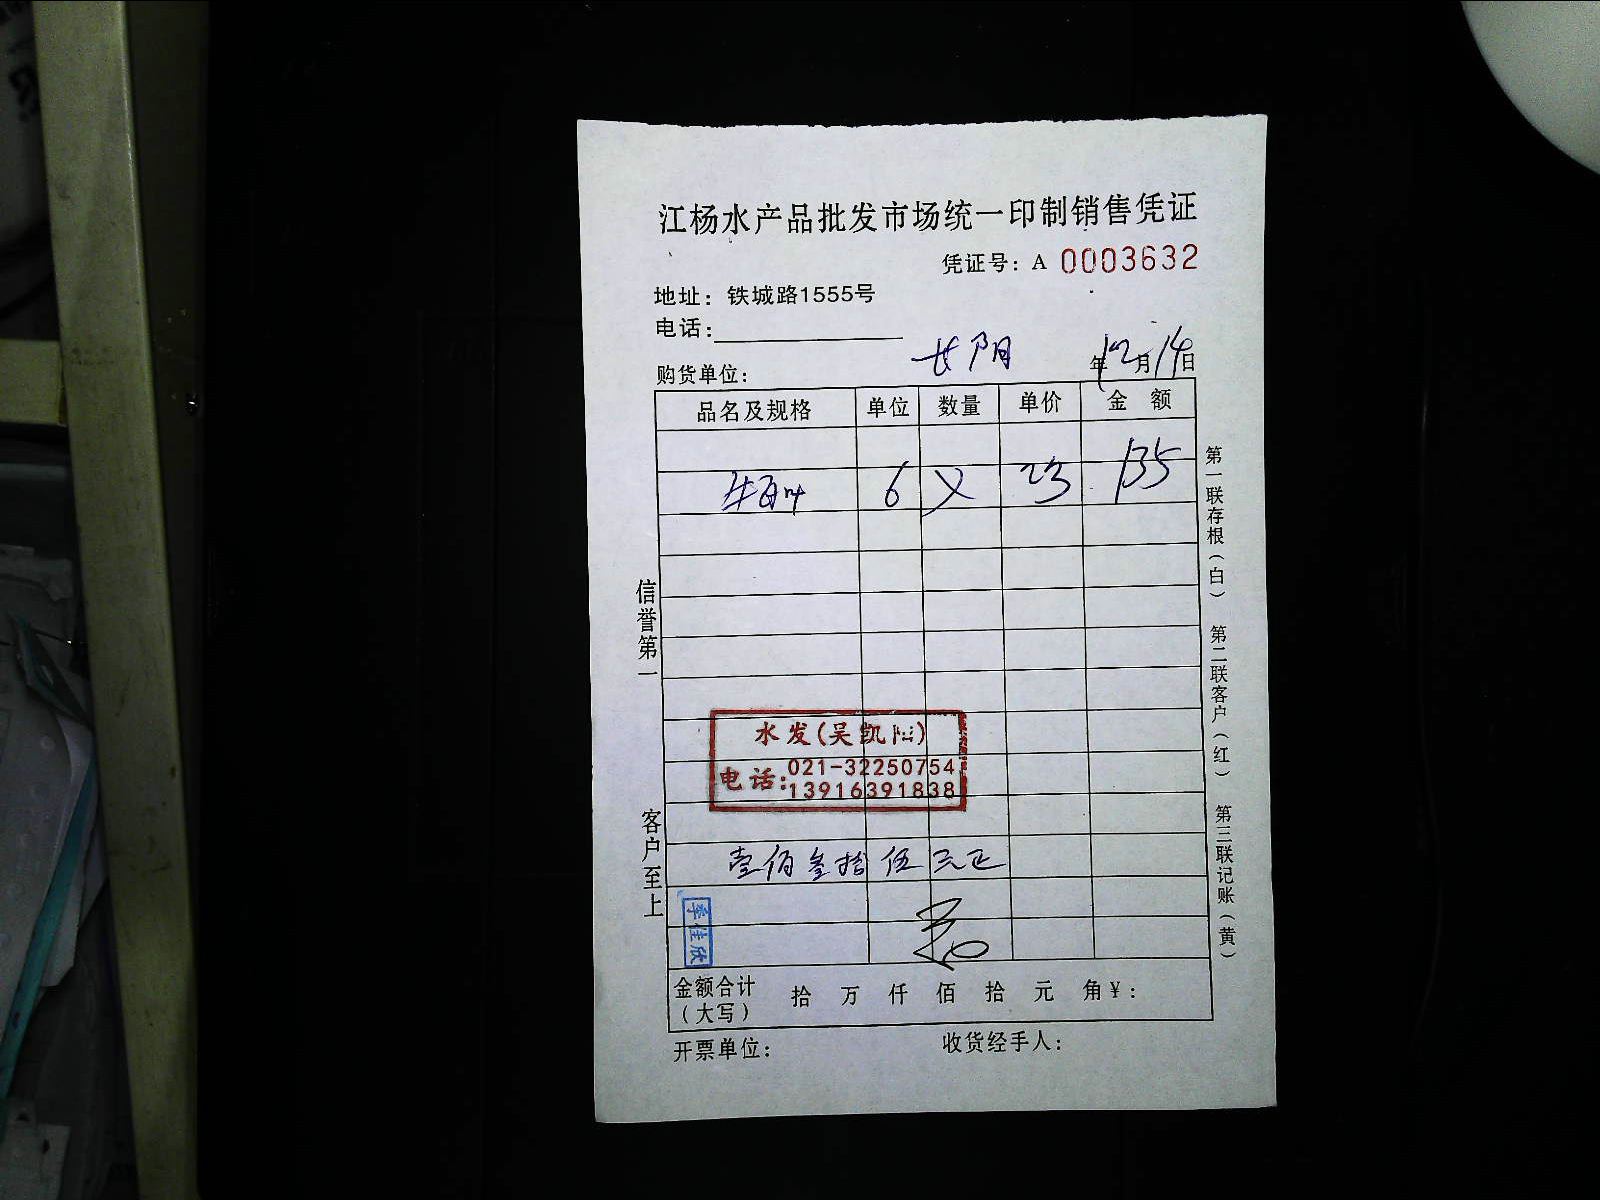 江杨水产品批发市场统一印制销售凭证
凭证号：A 0003632
地址：铁城路1555号
电话：
购货单位： 长阳 年12月14日
品名及规格 单位 数量 单价 金 额
6 × 23 135
水发(吴凯阳)
电话：021-32250754
13916391838
壹佰叁拾伍元正
季佳欣
金额合计（大写） 拾 万 仟 佰 拾 元 角 ¥：
开票单位： 收货经手人：
信誉第一
客户至上
第一联存根（白）
第二联客户（红）
第三联记账（黄）